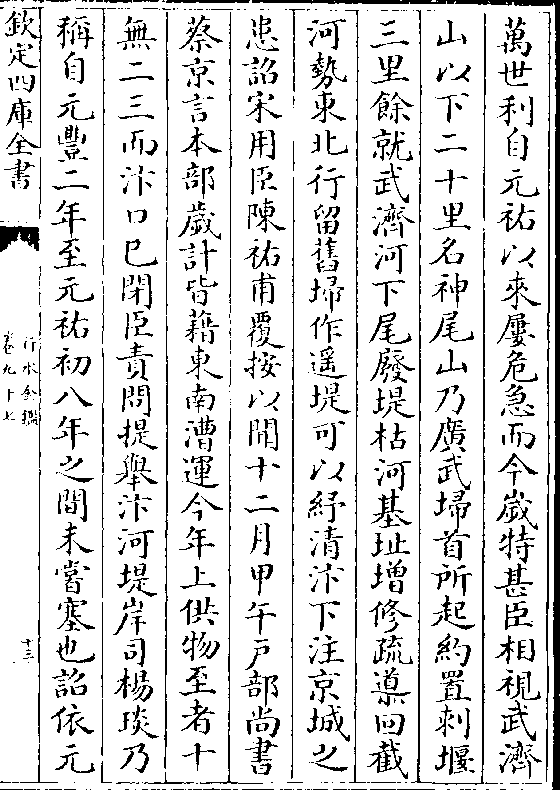 萬世利自元祐以來屢危急而今歲特甚臣相視武濟
山以下二十里名神尾山乃廣武埽首所起約置刺堰
三里餘就武濟河下尾廢堤枯河基址增修疏導回截
河勢東北行留舊埽作遥堤可以紓清汴下注京城之
患詔宋用臣陳祐甫覆按以聞十二月甲午戸部尚書
蔡京言本部歲計皆藉東南漕運今年上供物至者十
無二三而汴口已閉臣責問提舉汴河堤岸司楊琰乃
稱自元豐二年至元祐初八年之間未嘗塞也詔依元
欽定四庫全書
行水金鑑
卷九十七
十三